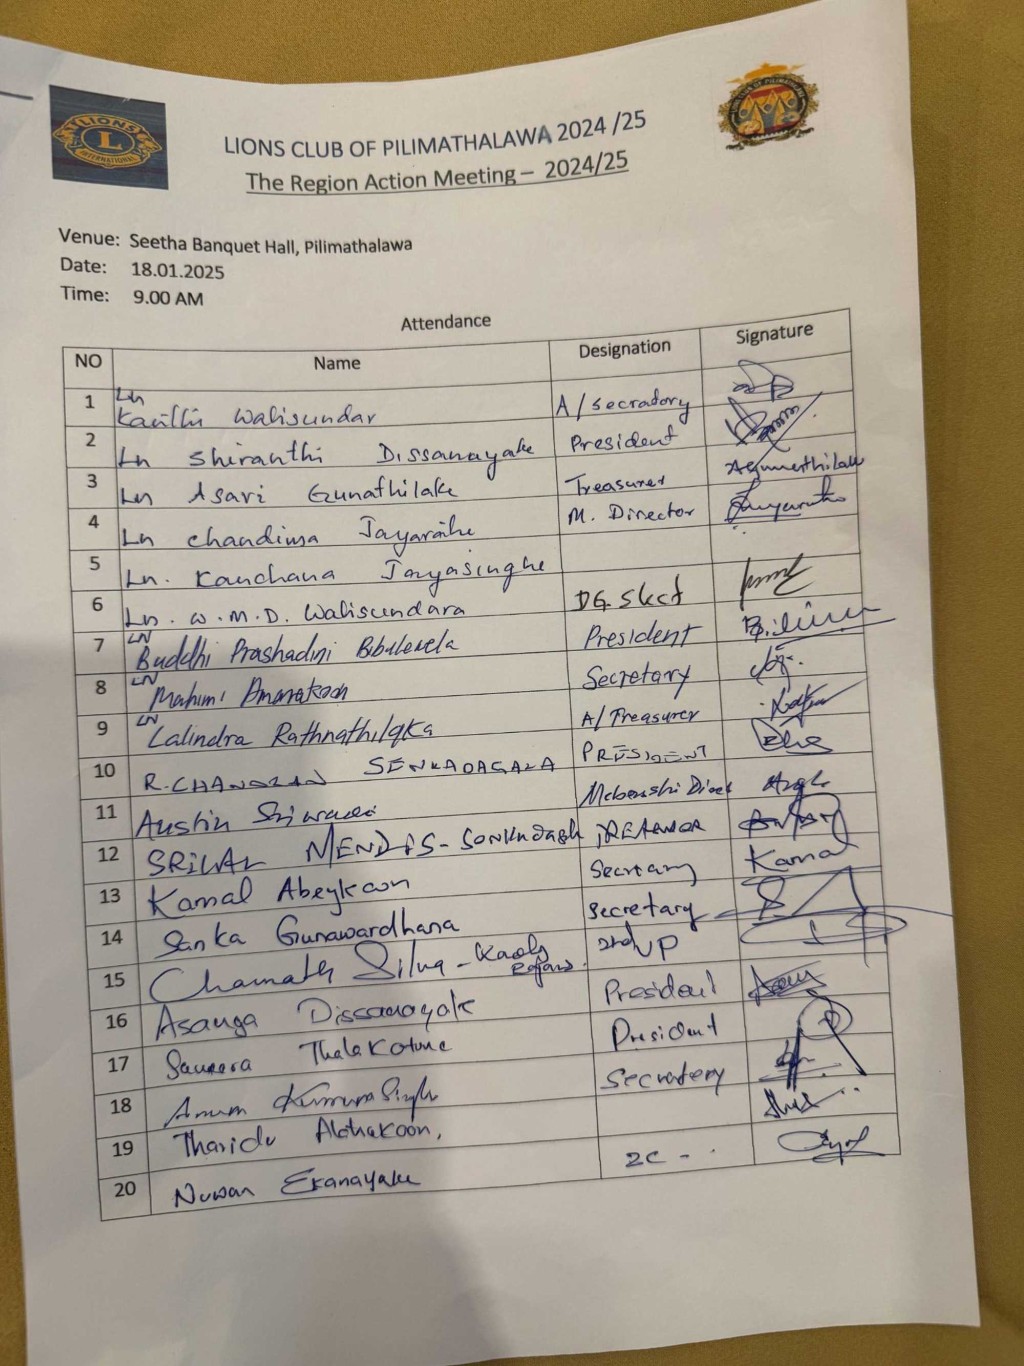 LIONS
L
INTERNATIONAL
LIONS CLUB OF PILIMATHALAWA 2024 /25
The Region Action Meeting – 2024/25
Venue: Seetha Banquet Hall, Pilimathalawa
Date: 18.01.2025
Time: 9.00 AM
Attendance
NO Name Designation Signature
1 Ln Walisundar A/secradory
2 Ln Shiranthi Dissanayake President
3 Ln Asari Gunathilake Treasurer
4 Ln chandima Jayarathe M. Director
5 Ln. Kanchana Jayasinghe
6 Ln. W.M.D. Walisundara DG. Slect
7 LN Buddhi Prashadini President
8 LN Mahimi Amarakoon Secretary
9 LN Lalindra Rathnathilaka A/Treasurer
10 R. CHANDRAN SENKADAGALA PRESIDENT
11 Austin
12 SRILAL MENDIS -
13 Kamal Abeykoon Secretary Kamal
14 Sanka Gunawardhana Secretary
15 Chamath Silva - 2nd VP
16 Asanga Dissanayake President
17 Sameera President
18 Secretary
19 Tharidu Alahakoon,
20 Nuwan Ekanayake ZC - .